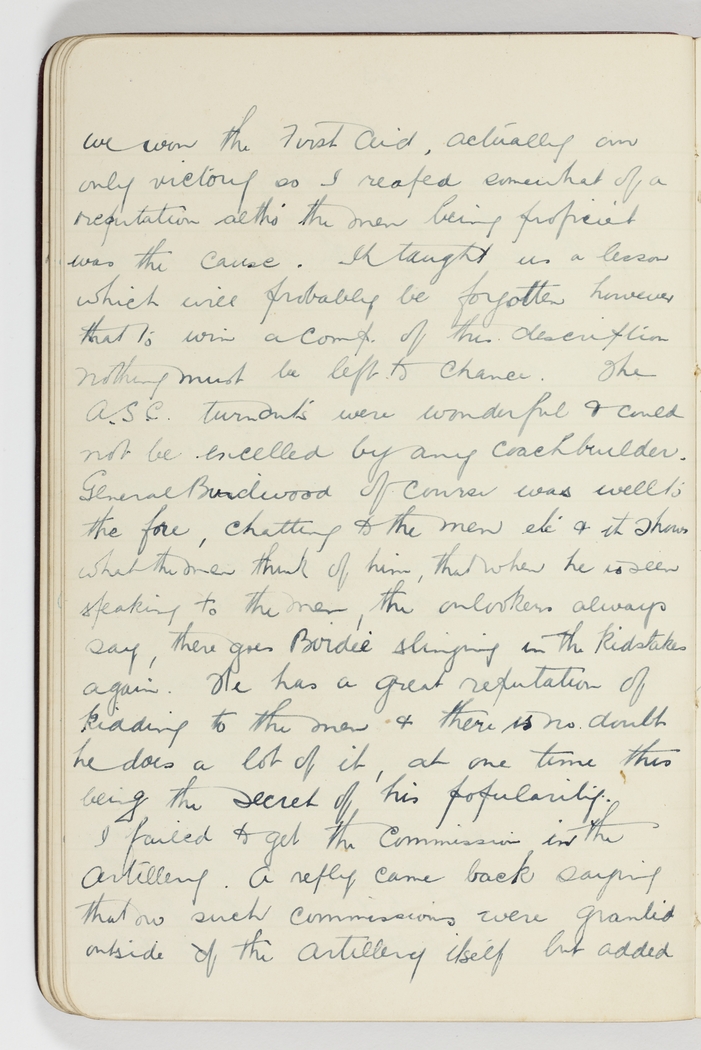 we won the First Aid, actually our
only victory so I reaped somewhat of a
reputation altho' the men being proficient
was the cause. It taught us a lesson
which will probably be forgotten however
that to win a comp. of this description
nothing must be left to chance. The
A.S.C. turnouts were wonderful & could
not be excelled by any coachbuilder.
General Birdwood of course was well to
the fore, chatting to the men etc & it shows
what the men think of him, that when he is seen
speaking to the men, the onlookers always
say, there goes Birdie slinging in the kidstakes
again. He has a great reputation of
kidding to the men & there is no doubt
he does a lot of it, at one time this
being the secret of his popularity.
I failed to get the Commission in the
Artillery. A reply came back saying
that no such commissions were granted
outside of the Artillery itself but added